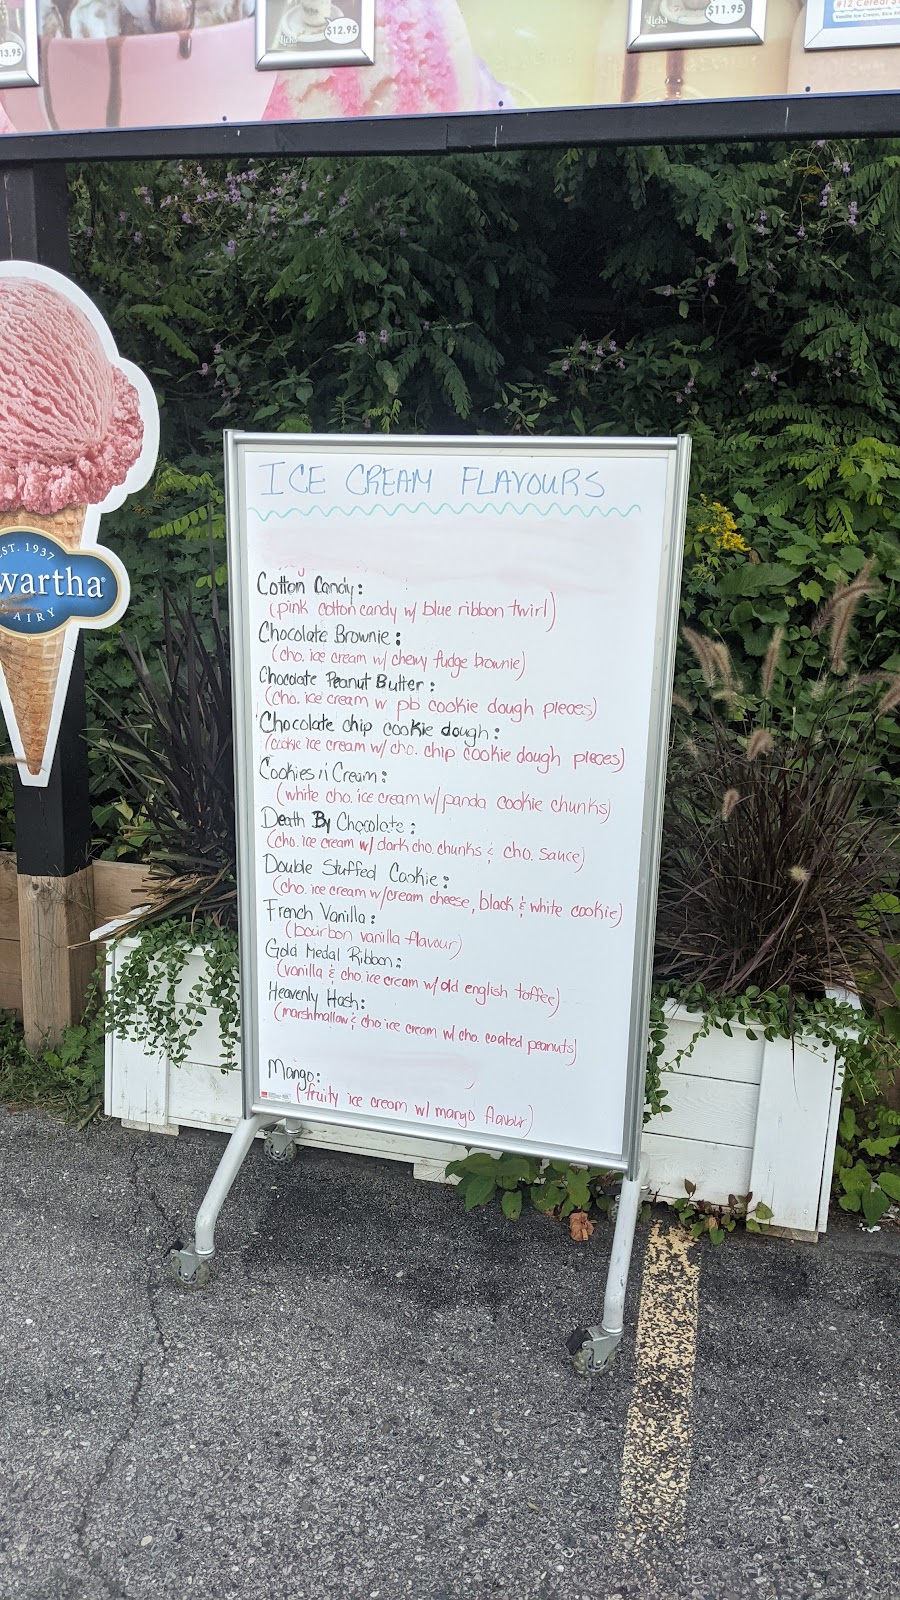 13.95
$12.95
licks
$11.95
#12 Cereal
EST. 1937
wartha
AIRY
ICE CREAM FLAVOURS
Cotton Candy:
(pink cotton candy w/ blue ribbon twirl)
Chocolate Brownie:
(cho. ice cream w/ chewy fudge brownie)
Chocolate Peanut Butter:
(cho. ice cream w pb cookie dough pieces)
Chocolate chip cookie dough:
(cookie ice cream w/ cho. chip cookie dough pieces)
Cookies n' Cream:
(white cho. ice cream w/ panda cookie chunks)
Death By Chocolate:
(cho. ice cream w/ dark cho. chunks & cho. sauce)
Double Stuffed Cookie:
(cho. ice cream w/ cream cheese, black & white cookie)
French Vanilla:
(bourbon vanilla flavour)
Gold Medal Ribbon:
(vanilla & cho. ice cream w/ old english toffee)
Heavenly Hash:
(marshmallow & cho ice cream w/ cho. coated peanuts)
Mango:
(fruity ice cream w/ mango flavour)